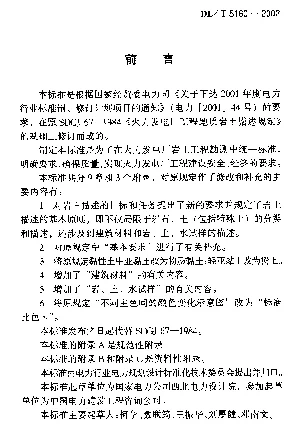 DL／T 5160－2002
前 言
本标准是根据国家经贸委电力司《关于下达2001年度电力
行业标准制、修订计划项目的通知》（电力［2001］44号）的要
求，在原SDGJ 67—1984《火力发电厂工程地质岩土描述规定》
的基础上修订而成的。
制定本标准是为了在火力发电厂岩土工程勘测中统一标准，
明确要求，确保质量，实现火力发电厂工程建设安全、经济的要求。
本标准共分9章和3个附录，对原规定作了修改和补充的主
要内容有：
1 对岩土描述的目标和任务提出了新的要求并规定了岩土
描述的基本原则，即不仅局限于对岩、土（包括特殊土）的分类和
描述，还涉及到建筑材料和岩、土、水试样的描述。
2 对原规定中“基本要求”进行了有关补充。
3 将原规定黏性土中亚黏土改为粉质黏土；轻亚黏土改为粉土。
4 增加了“建筑材料”的有关内容。
5 增加了“岩、土、水试样”的有关内容。
6 将原规定“不同主色间的颜色变化示意图”改为“标准
比色卡”。
本标准发布之日起代替SDGJ 67—1984。
本标准的附录A是规范性附录。
本标准的附录B和附录C是资料性附录。
本标准由电力行业电力规划设计标准化技术委员会提出并归口。
本标准起草单位为国家电力公司西北电力设计院，参加起草
单位为中国电力建设工程咨询公司。
本标准主要起草人：